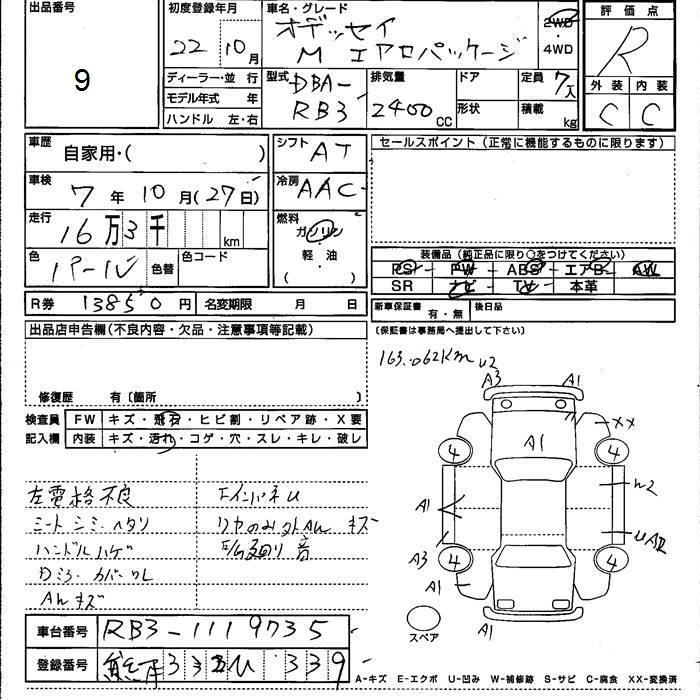 出品番号
9
初度登録年月
22 10月
車名・グレード
オデッセイ
M エアロパッケージ
2WD
・
4WD
評価点
R
外装 内装
C C
ディーラー・並 行
モデル年式 年
ハンドル 左・右
型式 DBA-
RB3
排気量
2400 CC
ドア
形状
定員 7人
積載 kg
車歴
自家用・( )
シフト
AT
セールスポイント(正常に機能するものに限ります)
車検
7年10月(27日)
冷房
AAC
走行
16万3千 km
燃料
ガソリン
・
軽・油
( )
色
パール
色替
色コード
装備品(純正品に限り○をつけてください)
PS・PW・ABS・エアB・AW
SR ナビ・TV・本革
R券 13850円
名変期限 月 日
新車保証書
有・無
後日品
出品店申告欄(不良内容・欠品・注意事項等記載)
(保証書は事務局へ提出して下さい)
163.062Km
修復歴 有〔箇所 〕
検査員
記入欄
FW キズ・飛石・ヒビ割・リペア跡・X要
内装 キズ・汚れ・コゲ・穴・スレ・キレ・破レ
左電格不良
シート シミ・ヘタリ
ハンドルハゲ
U2
A3 A1
XX
A1
4 4
A1
A3
4 4
A1
A1
スペア
車台番号 RB3-1119735
登録番号 熊本 332 ひ 339
A-キズ E-エクボ U-凹み W-補修跡 S-サビ C-腐食 XX-変換済